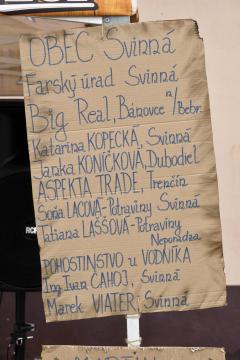 OBEC Svinná
Farský úrad Svinná
Big Real, Bánovce n/Bebr.
Katarína KOPECKÁ, Svinná
Janka KONÍČKOVÁ, Dubodiel
ASPEKTA TRADE, Trenčín
Soňa LACOVÁ-Potraviny Svinná
Tatiana LAŠŠOVÁ-Potraviny
Neporadza
POHOSTINSTVO u VODNÍKA
Ing. Ivan ČAHOJ, Svinná
Marek VIATER, Svinná